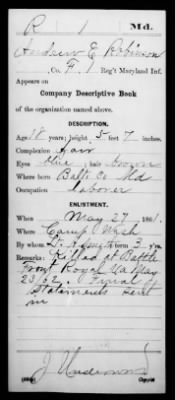 R 1 Md.
Andrew E Robinson
Co. F, 1 Reg't Maryland Inf.
Appears on
Company Descriptive Book
of the organization named above.
DESCRIPTION.
Age 18 years; height 5 feet 7 inches.
Complexion Fair
Eyes Blue; hair Brown
Where born Balto Co Md
Occupation Laborer
ENLISTMENT.
When May 27, 1861.
Where Camp Wash
By whom Lt. term 3 y'rs.
Remarks: Killed at Battle
Front Royal Va May
23/62. Final
Statements Sent
in
J Underwood
Copyist.